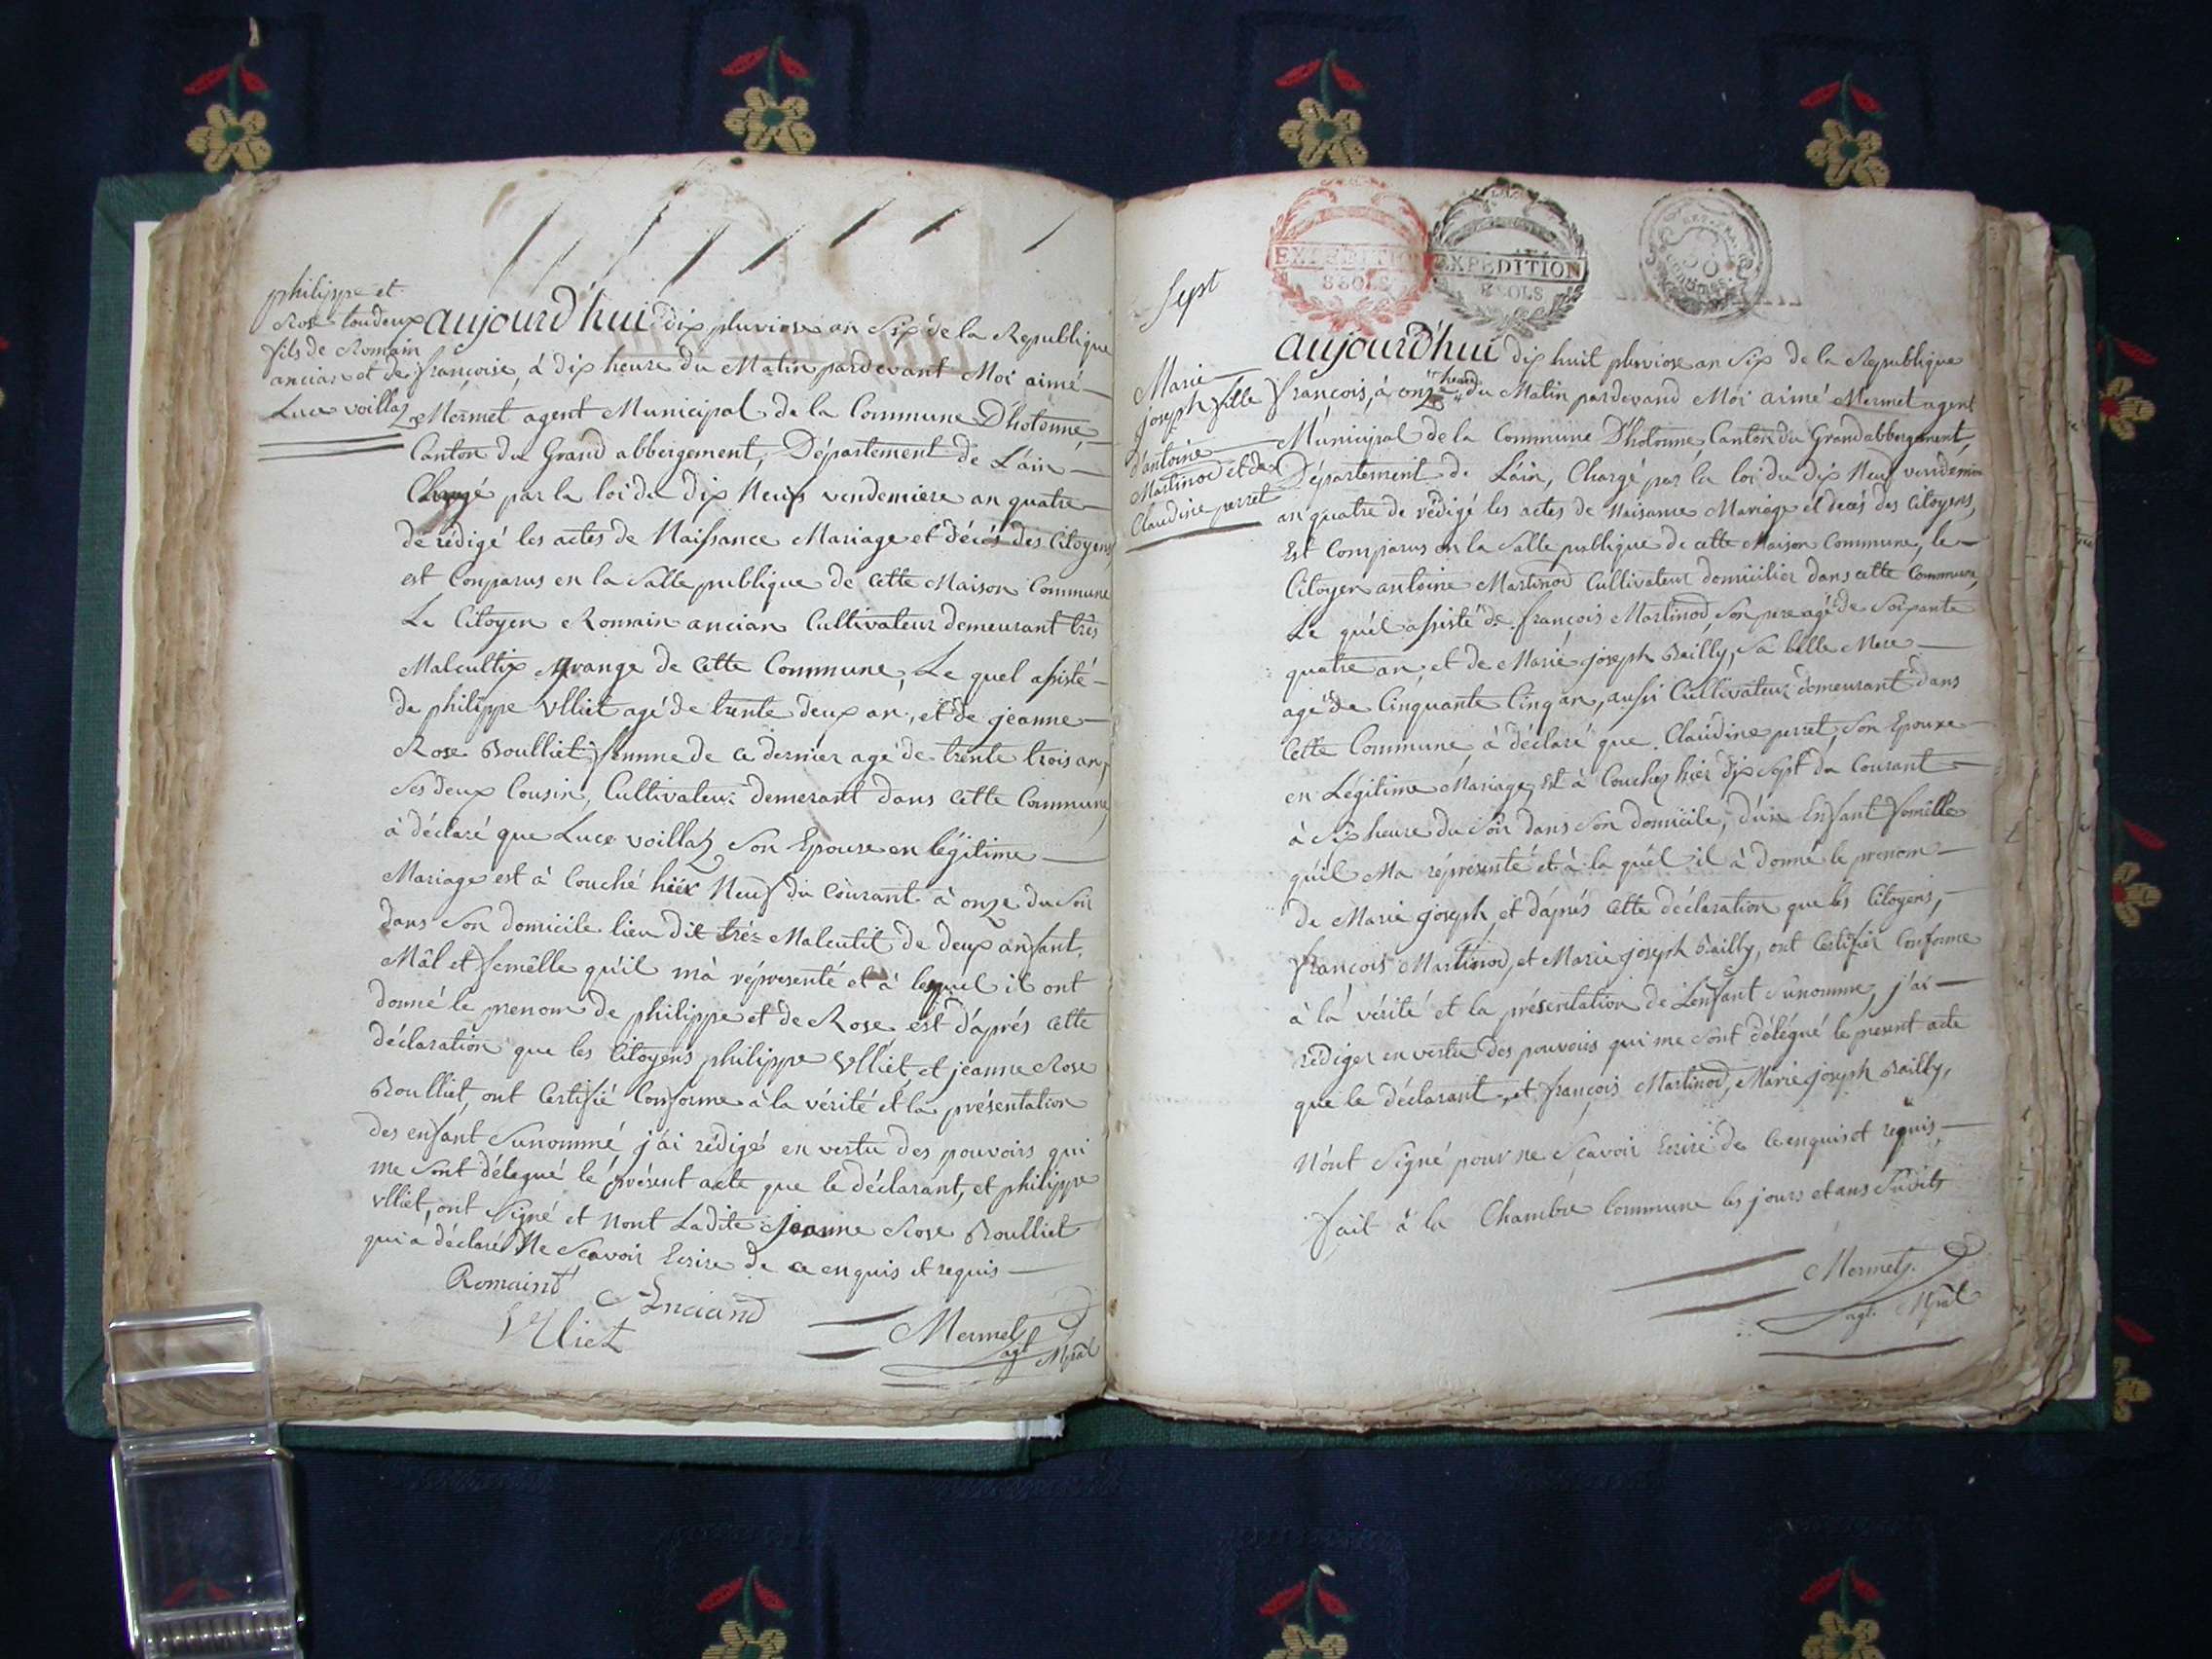 philippe et
Rose toudeux
fils de Romain
ancian et de
Luce voillaz
aujourd'hui dix pluviose an Six de la Republique
françoise, à dix heure du Matin pardevant Moi aimé
Mermet agent Municipal de la Commune D'hotonne,
Canton du Grand abbergement, Département de L'áin
Chargé par la loi du dix Neuf vendemiere an quatre
de rédigé les actes de Naissance Mariage et décés des Citoyens,
est Comparus en la Salle publique de cette Maison Commune
Le Citoyen Romain ancian Cultivateur demeurant três
Malcultix grange de cette Commune, Le quel assisté
de philippe Ulliet agé de trente deux an, et de jeanne
Rose Boulliet femme de ce dernier agé de trente trois an,
Ses deux Cousin, Cultivateur demerant dans cette Commune,
à déclaré que Luce voillaz Son Epouse en légitime
Mariage est à Couché hiér Neuf du Courant à onze du Soir
dans Son domicile lieu dit tréz Malcutit de deux anfant,
Mâl et femêlle qu'il m'à réprésenté et à lequel il ont
donné le prenom de philippe et de Rose est d'aprés cette
déclaration que les Citoyens philippe Ulliet, et jeanne Rose
Boulliet, ont Certifié Conforme à la vérité et la présentation
des enfant Sunommé j'ai rédigé en vertu des pouvoirs qui
me Sont délegué le présent acte que le déclarant, et philippe
Ulliet, ont Signé et Nont Ladite jeanne Rose Boulliet
qui a déclaré Ne Scavoir Ecrire de ce enquis et requis
Romaint Anciand
Ulliet
Mermet
agt Mpal
EXPEDITION
8 SOLS
EXPEDITION
8 SOLS
Sept
Marie
joseph fille
d'antoine
Martinod et de
Claudine perret
aujourd'hui dix huit pluviose an Six de la Republique
françois, à onze heure du Matin pardevand Moi aimé Mermet agent
Múnicipal de la Commune D'hotonne Canton du Grandabbergement,
Département de L'áin, Chargé par la loi du dix Neuf vendemiere
an quatre de rédigé les actes de Naisance Mariage et décés des Citoyens,
Est Comparus en la Salle publique de cette Maison Commune, le
Citoyen antoine Martinod Cultivateur domicilier dans cette Commune,
Le quél assisté de françois Martinod, Son pere agé de Soixante
quatre an, et de Marie joseph Bailly, Sa belle Mere
agé de Cinquante Cinq an, aussi Cultivateur demeurant dans
Cette Commune, à déclaré que Claudine perret, Son Epouse
en Légitime Mariage, Est à Couchez hier dix Sept du Courant
à Six heure du Soir dans Son domicile, d'un Enfant femêlle
qu'il Ma réprésenté et à la quél il à donné le prenom
de Marie joseph, et d'aprés cette déclaration que les Citoyens,
françois Martinod, et Marie joseph Bailly, ont Certifier Conforme
à la vérité et la présentation de L'enfant Sunomme, j'ai
rédiger en vertu des pouvoirs qui me Sont délégué le present acte
que le déclarant, et françois Martinod, Marie joseph Bailly,
N'ont Signé pour ne Scavoir Ecrire de Ce enquis et requis,
fait à la Chambre Commune les jours et ans Sudits
Mermet
agt. Mpal